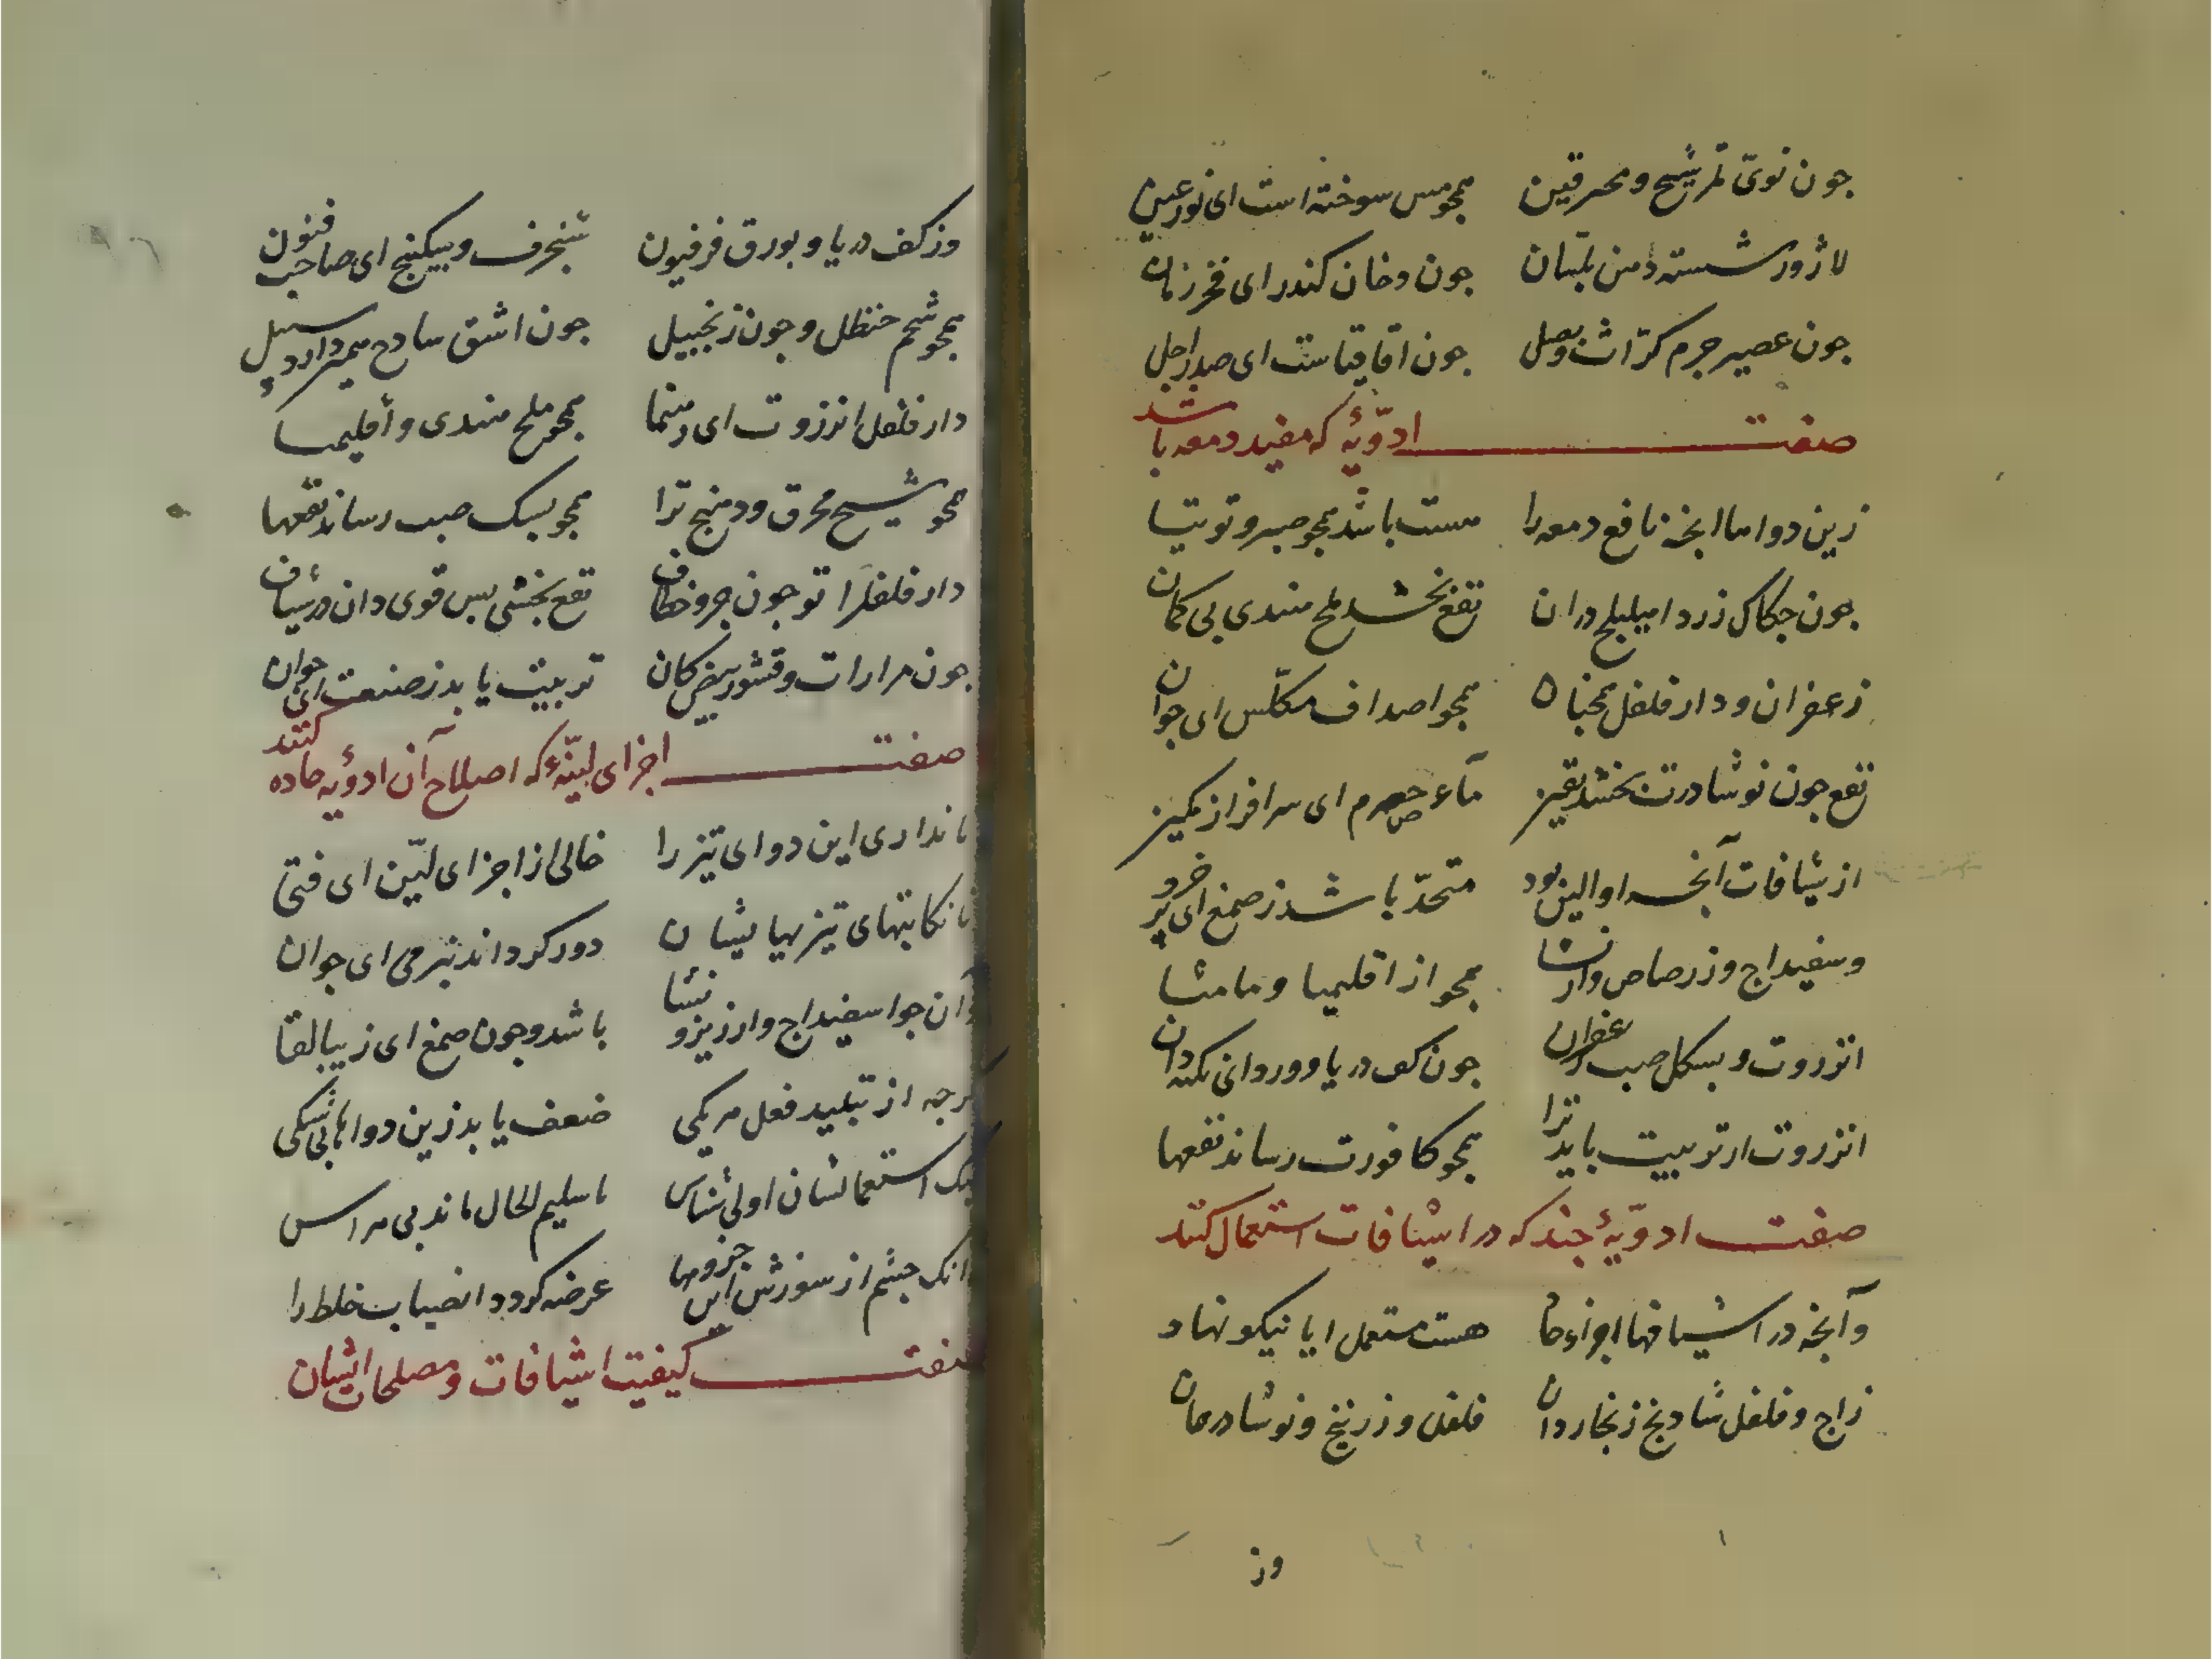 جون نوی تمر شیح و محرقین همجو مس سوخته است ای نور عین
لاژورد شسته دهن بلسان جون دخان کندر ای فخر زمان
جون عصیر جرم کراث و بصل جون اقاقیاست ای صدر اجل
صفت ادویهٔ که مفید دمعه باشد
زین دواها انجه نافع دمعه را هست باشد همجو صبر و توتیا
جون حکاک زرد اهلیلج دران نفع بخشد ملح هندی بی کمان
زعفران و دار فلفل همجنان همجو اصداف مکلس ای جوان
نفع جون نوشادرت بخشد بقیز مآء حصرم ای سرافراز
از شیافات آنجه اوالین بود متحد باشد ز صمغ ای پر خرد
وسفیداج وز رصاص و از نشا همجو از اقلیمیا و مامثا
انزروت و بسکل صبر زعفران جون کف دریا و ورد انی نکته دان
انزروت ار تربیت باید ترا همجو کافورت رساند نفعها
صفت ادویهٔ جند که در اشیافات استعمال کنند
وآنجه در اشیافها اجزاء حاد هست مستعمل ایا نیکو نهاد
زاج و فلفل شادنج زنجار دان فلفل و زرنیخ و نوشادر همان
وز
وز کف دریا و بورق فرفیون شنجرف و سکبینج ای صاحب فنون
همجو شحم حنظل و جون زنجبیل جون اشق سادج همیدارد سبیل
دار فلفل انزروت ای رهنما همجو ملح هندی و اقلیمیا
همجو شیح محرق و دهنج ترا همجو بسک صبر رساند نفعها
دار فلفل را تو جون خرو خطاف نفع بخشی بس قوی دان در شیاف
جون مرارات و قشور بیض کان تربیت یابد ز صنعت ای جوان
صفت اجزای لینهٔ که اصلاح آن ادویه حاده کنند
تا نداری این دوای تیز را خالی از اجزای لین ای فتی
تا نکایتهای تیزیهایشان دور کرداند بنرمی ای جوان
وآن جو اسفیداج و ارزیز و نشا باشد و جون صمغ ای زیبا لقا
کرجه از تبلید فعل هر یکی ضعف یابد زین دواها بی شکی
لیک استعمالشان اولی شناس تا سلیم الحال ماند بی هراس
زانک جشم از سوزش این جزوها عرضه کردد انصباب خلط را
صفت کیفیت اشیافات و مصلحات ایشان